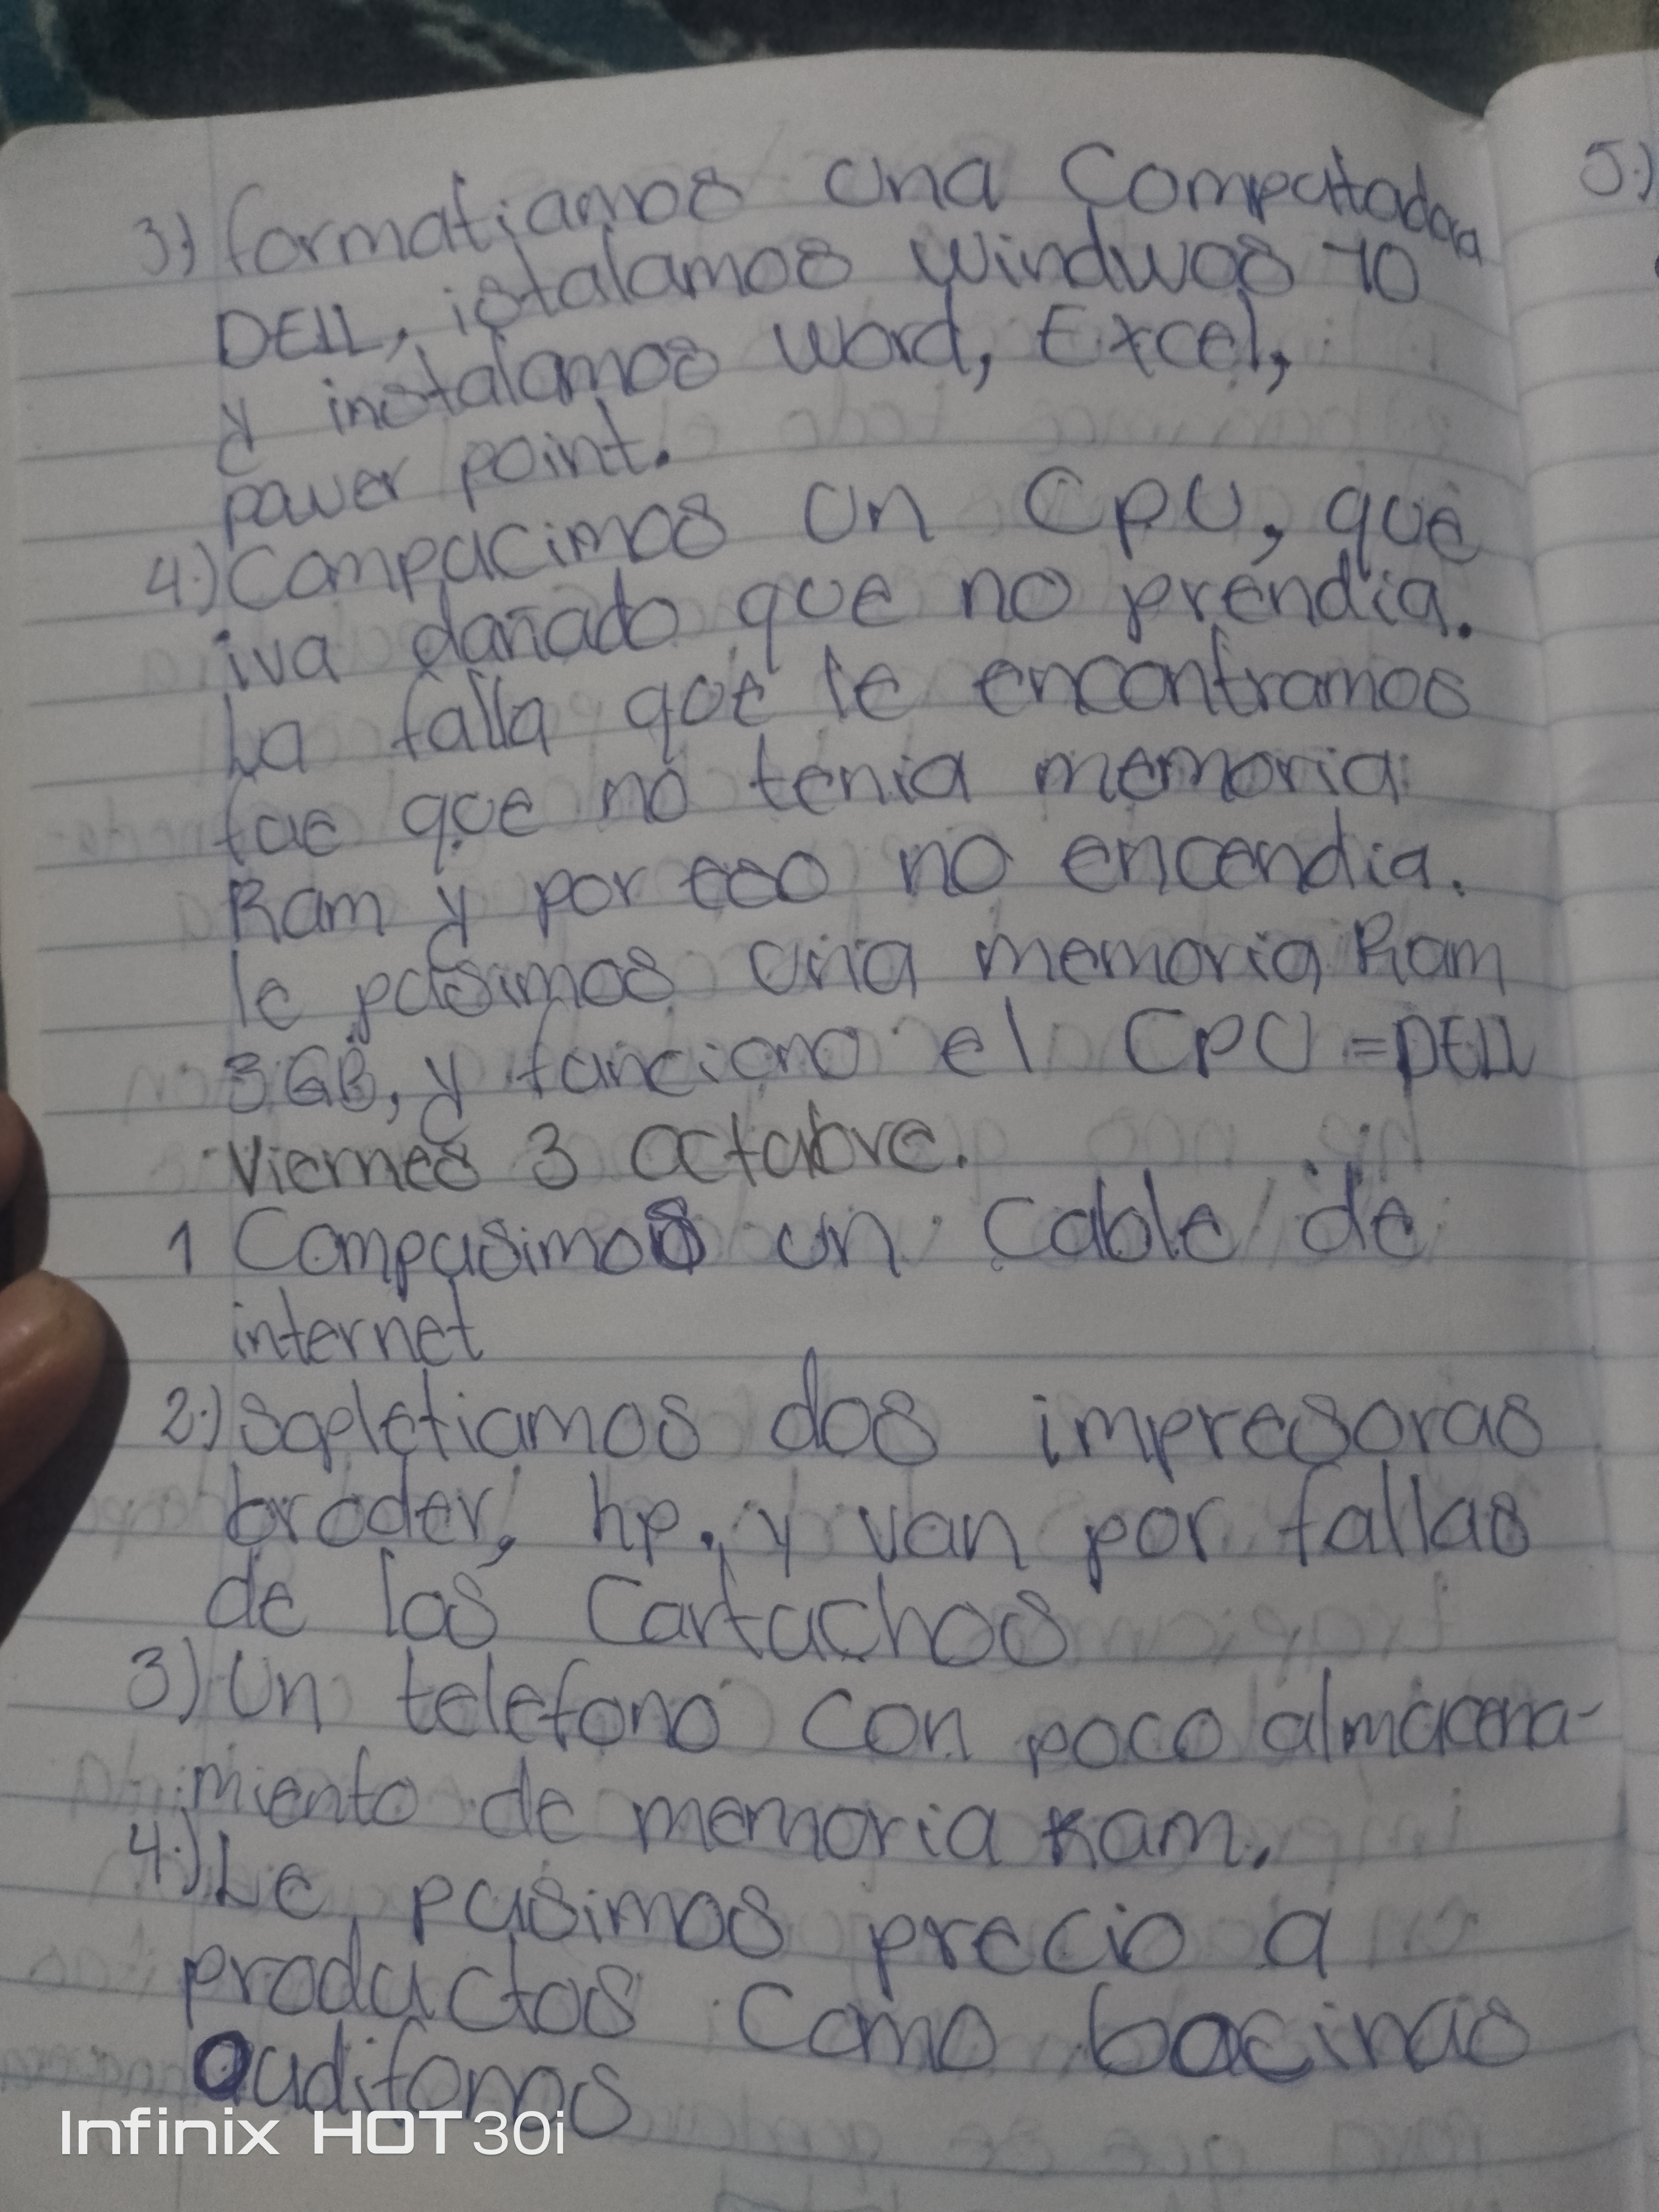 3.) formatiamos una Computadora
DELL, istalamos windwos 10
y instalamos word, Excel,
pawer point.
4.) Compucimos un CPU, que
iva dañado que no prendia.
La falla que le encontramos
fue que no tenia memoria
Ram y por eso no encendia.
le pusimos una memoria Ram
3GB, y funciono el CPU = DELL
Viernes 3 Octubre.
1 Compusimos un Cable de
internet
2.) Sopletiamos dos impresoras
broder, hp. y van por fallas
de los Cartuchos
3) Un telefono con poco almacena-
miento de memoria Ram.
4.) Le pusimos precio a
productos Como bocinas
audifonos
5.)
Infinix HOT 30i